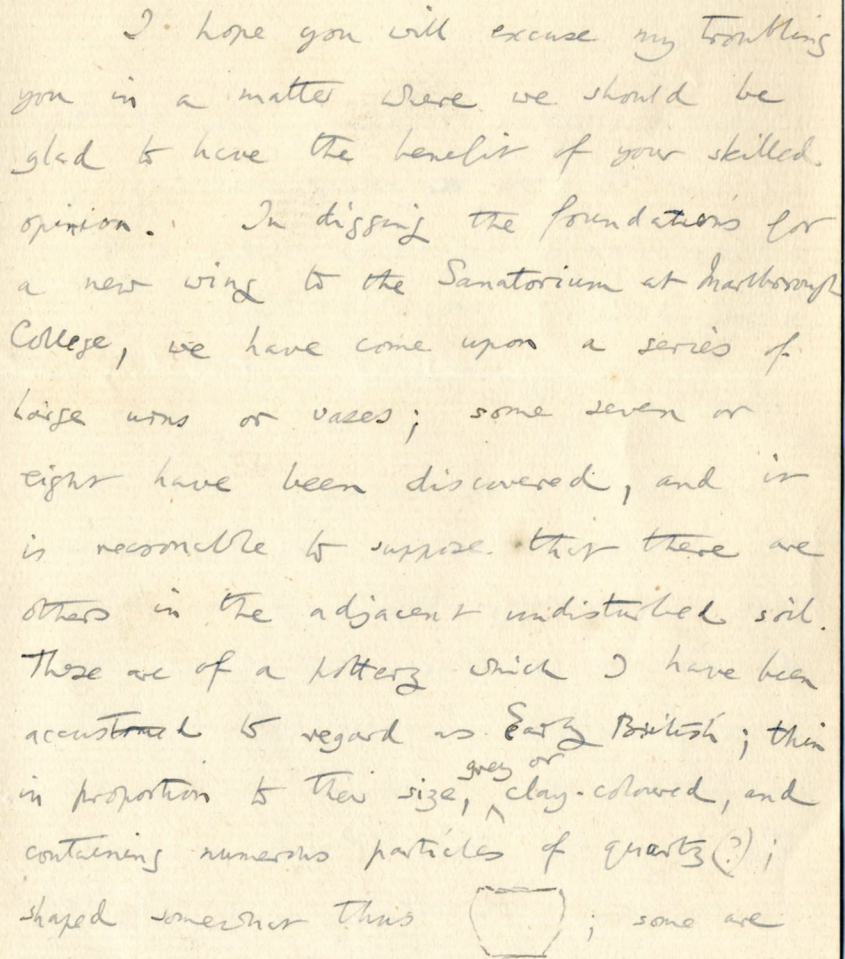 I hope you will excuse my troubling
you in a matter where we should be
glad to have the benefit of your skilled
opinion. In digging the foundations for
a new wing to the Sanatorium at Marlborough
College, we have come upon a series of
large urns or vases; some seven or
eight have been discovered, and it
is reasonable to suppose that there are
others in the adjacent undisturbed soil.
These are of a pottery which I have been
accustomed to regard as Early British; thin
in proportion to their size, grey or clay-coloured, and
containing numerous particles of quartz (?);
shaped somewhat thus ; some are